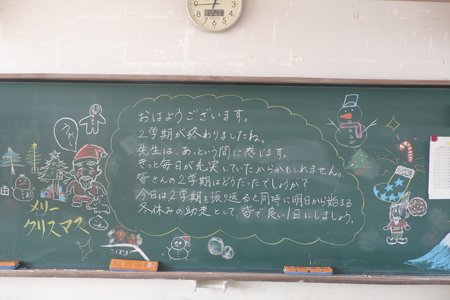 おはようございます。
2学期が終わりましたね。
先生は、あっという間に感じます。
きっと毎日が充実していたからかもしれません。
皆さんの2学期はどうだったでしょうか?
今日は2学期を振り返ると同時に明日から始まる
冬休みの助走として、皆で良い1日にしましょう。
メリー
クリスマス